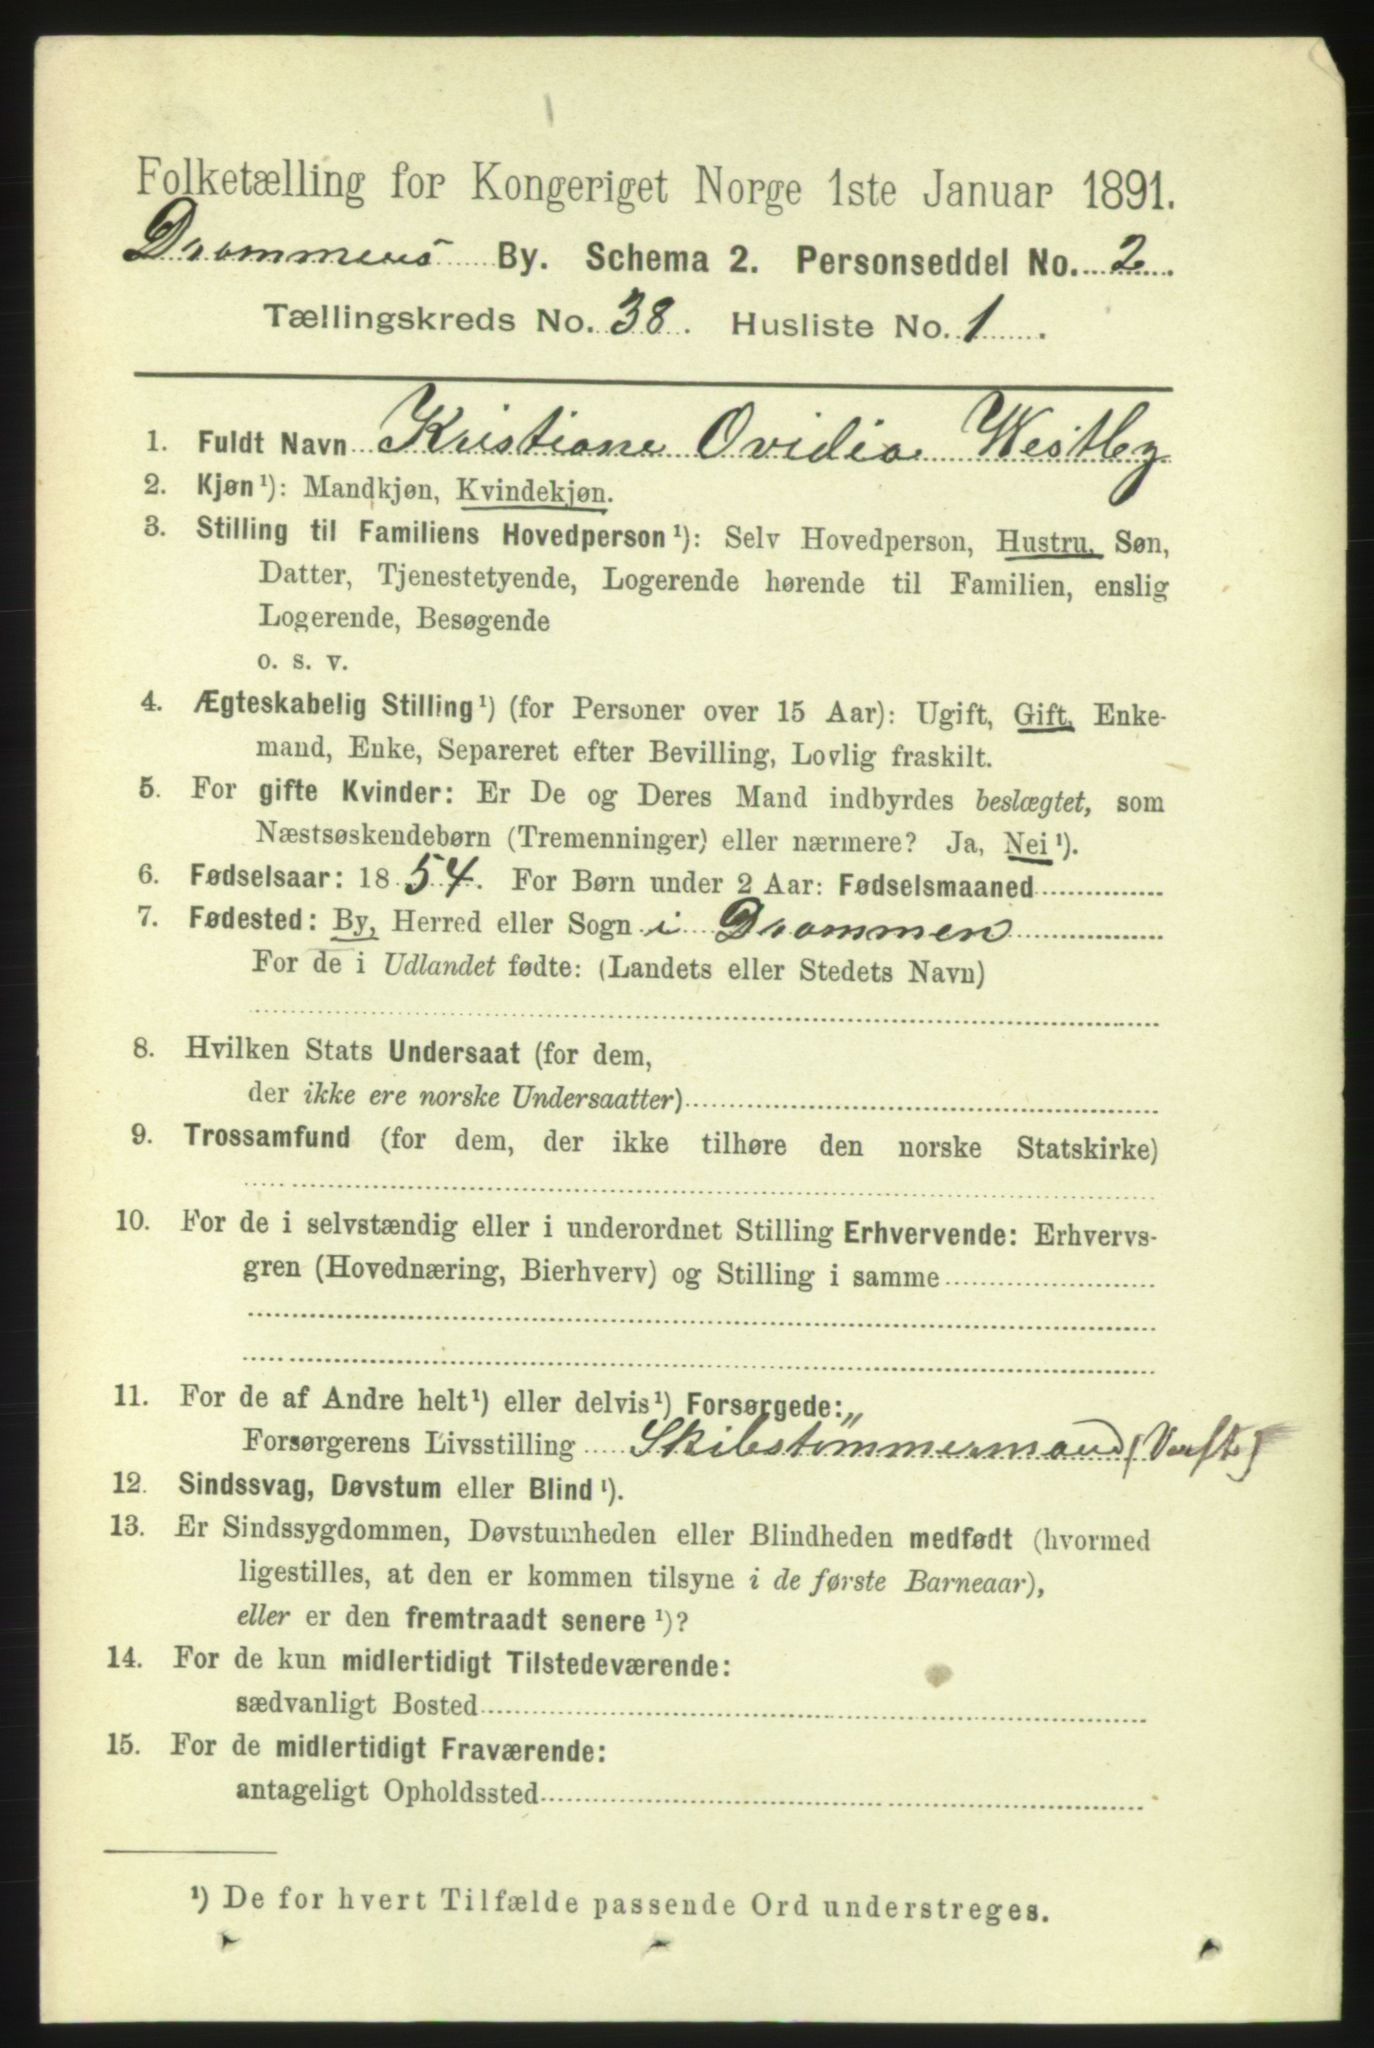 Folketælling for Kongeriget Norge 1ste Januar 1891.
Drammens By. Schema 2. Personseddel No. 2.
Tællingskreds No. 38. Husliste No. 1.
1. Fuldt Navn Kristiane Ovidia Westby
2. Kjøn ¹): Mandkjøn, Kvindekjøn.
3. Stilling til Familiens Hovedperson ¹): Selv Hovedperson, Hustru, Søn,
Datter, Tjenestetyende, Logerende hørende til Familien, enslig
Logerende, Besøgende
o. s. v.
4. Ægteskabelig Stilling ¹) (for Personer over 15 Aar): Ugift, Gift, Enke-
mand, Enke, Separeret efter Bevilling, Lovlig fraskilt.
5. For gifte Kvinder: Er De og Deres Mand indbyrdes beslægtet, som
Næstsøskendebørn (Tremenninger) eller nærmere? Ja, Nei ¹).
6. Fødselsaar: 1854. For Børn under 2 Aar: Fødselsmaaned
7. Fødested: By, Herred eller Sogn i Drammen
For de i Udlandet fødte: (Landets eller Stedets Navn)
8. Hvilken Stats Undersaat (for dem,
der ikke ere norske Undersaatter)
9. Trossamfund (for dem, der ikke tilhøre den norske Statskirke)
10. For de i selvstændig eller i underordnet Stilling Erhvervende: Erhvervs-
gren (Hovednæring, Bierhverv) og Stilling i samme
11. For de af Andre helt ¹) eller delvis ¹) Forsørgede:
Forsørgerens Livsstilling Skibstømmermand (Verft)
12. Sindssvag, Døvstum eller Blind ¹).
13. Er Sindssygdommen, Døvstumheden eller Blindheden medfødt (hvormed
ligestilles, at den er kommen tilsyne i de første Barneaar),
eller er den fremtraadt senere ¹)?
14. For de kun midlertidigt Tilstedeværende:
sædvanligt Bosted
15. For de midlertidigt Fraværende:
antageligt Opholdssted
¹) De for hvert Tilfælde passende Ord understreges.